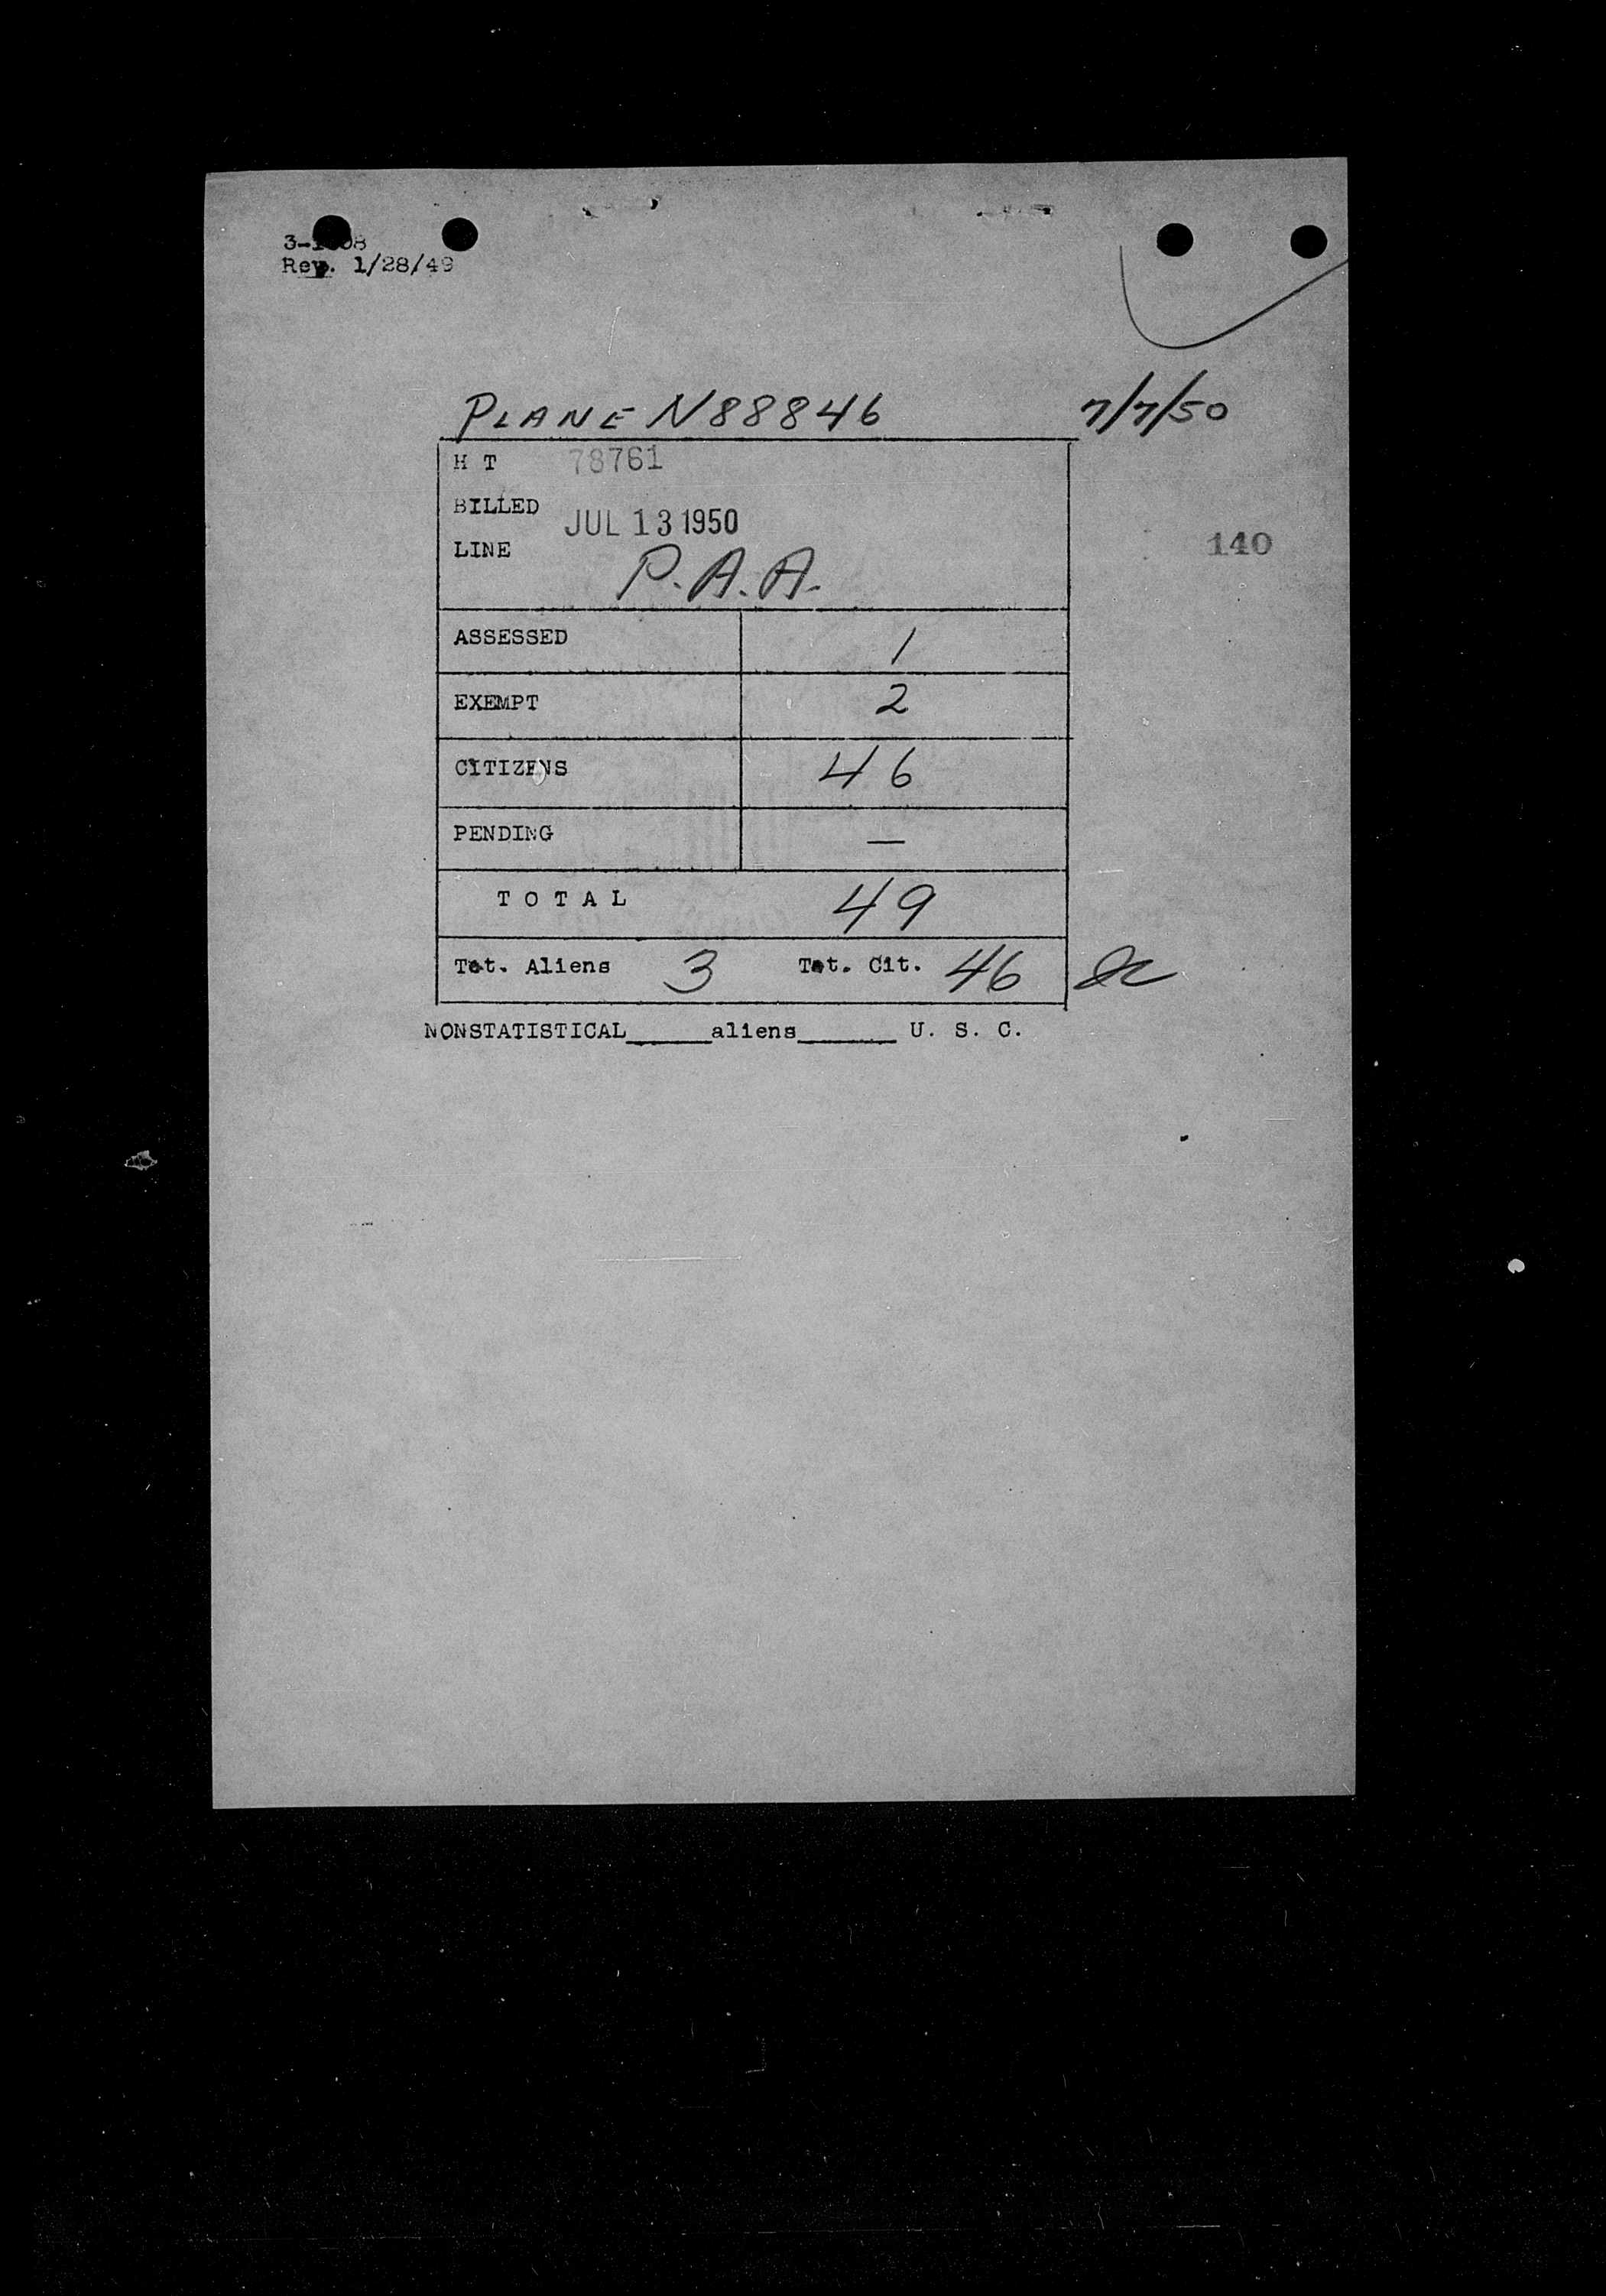 Rev. 1/28/49
PLANE N88846 7/7/50
H T 78761
BILLED JUL 13 1950
140
LINE P.A.A.
ASSESSED 1
EXEMPT 2
CITIZENS 46
PENDING —
TOTAL 49
Tot. Aliens 3 Tot. Cit. 46
NONSTATISTICAL_____aliens______ U. S. C.